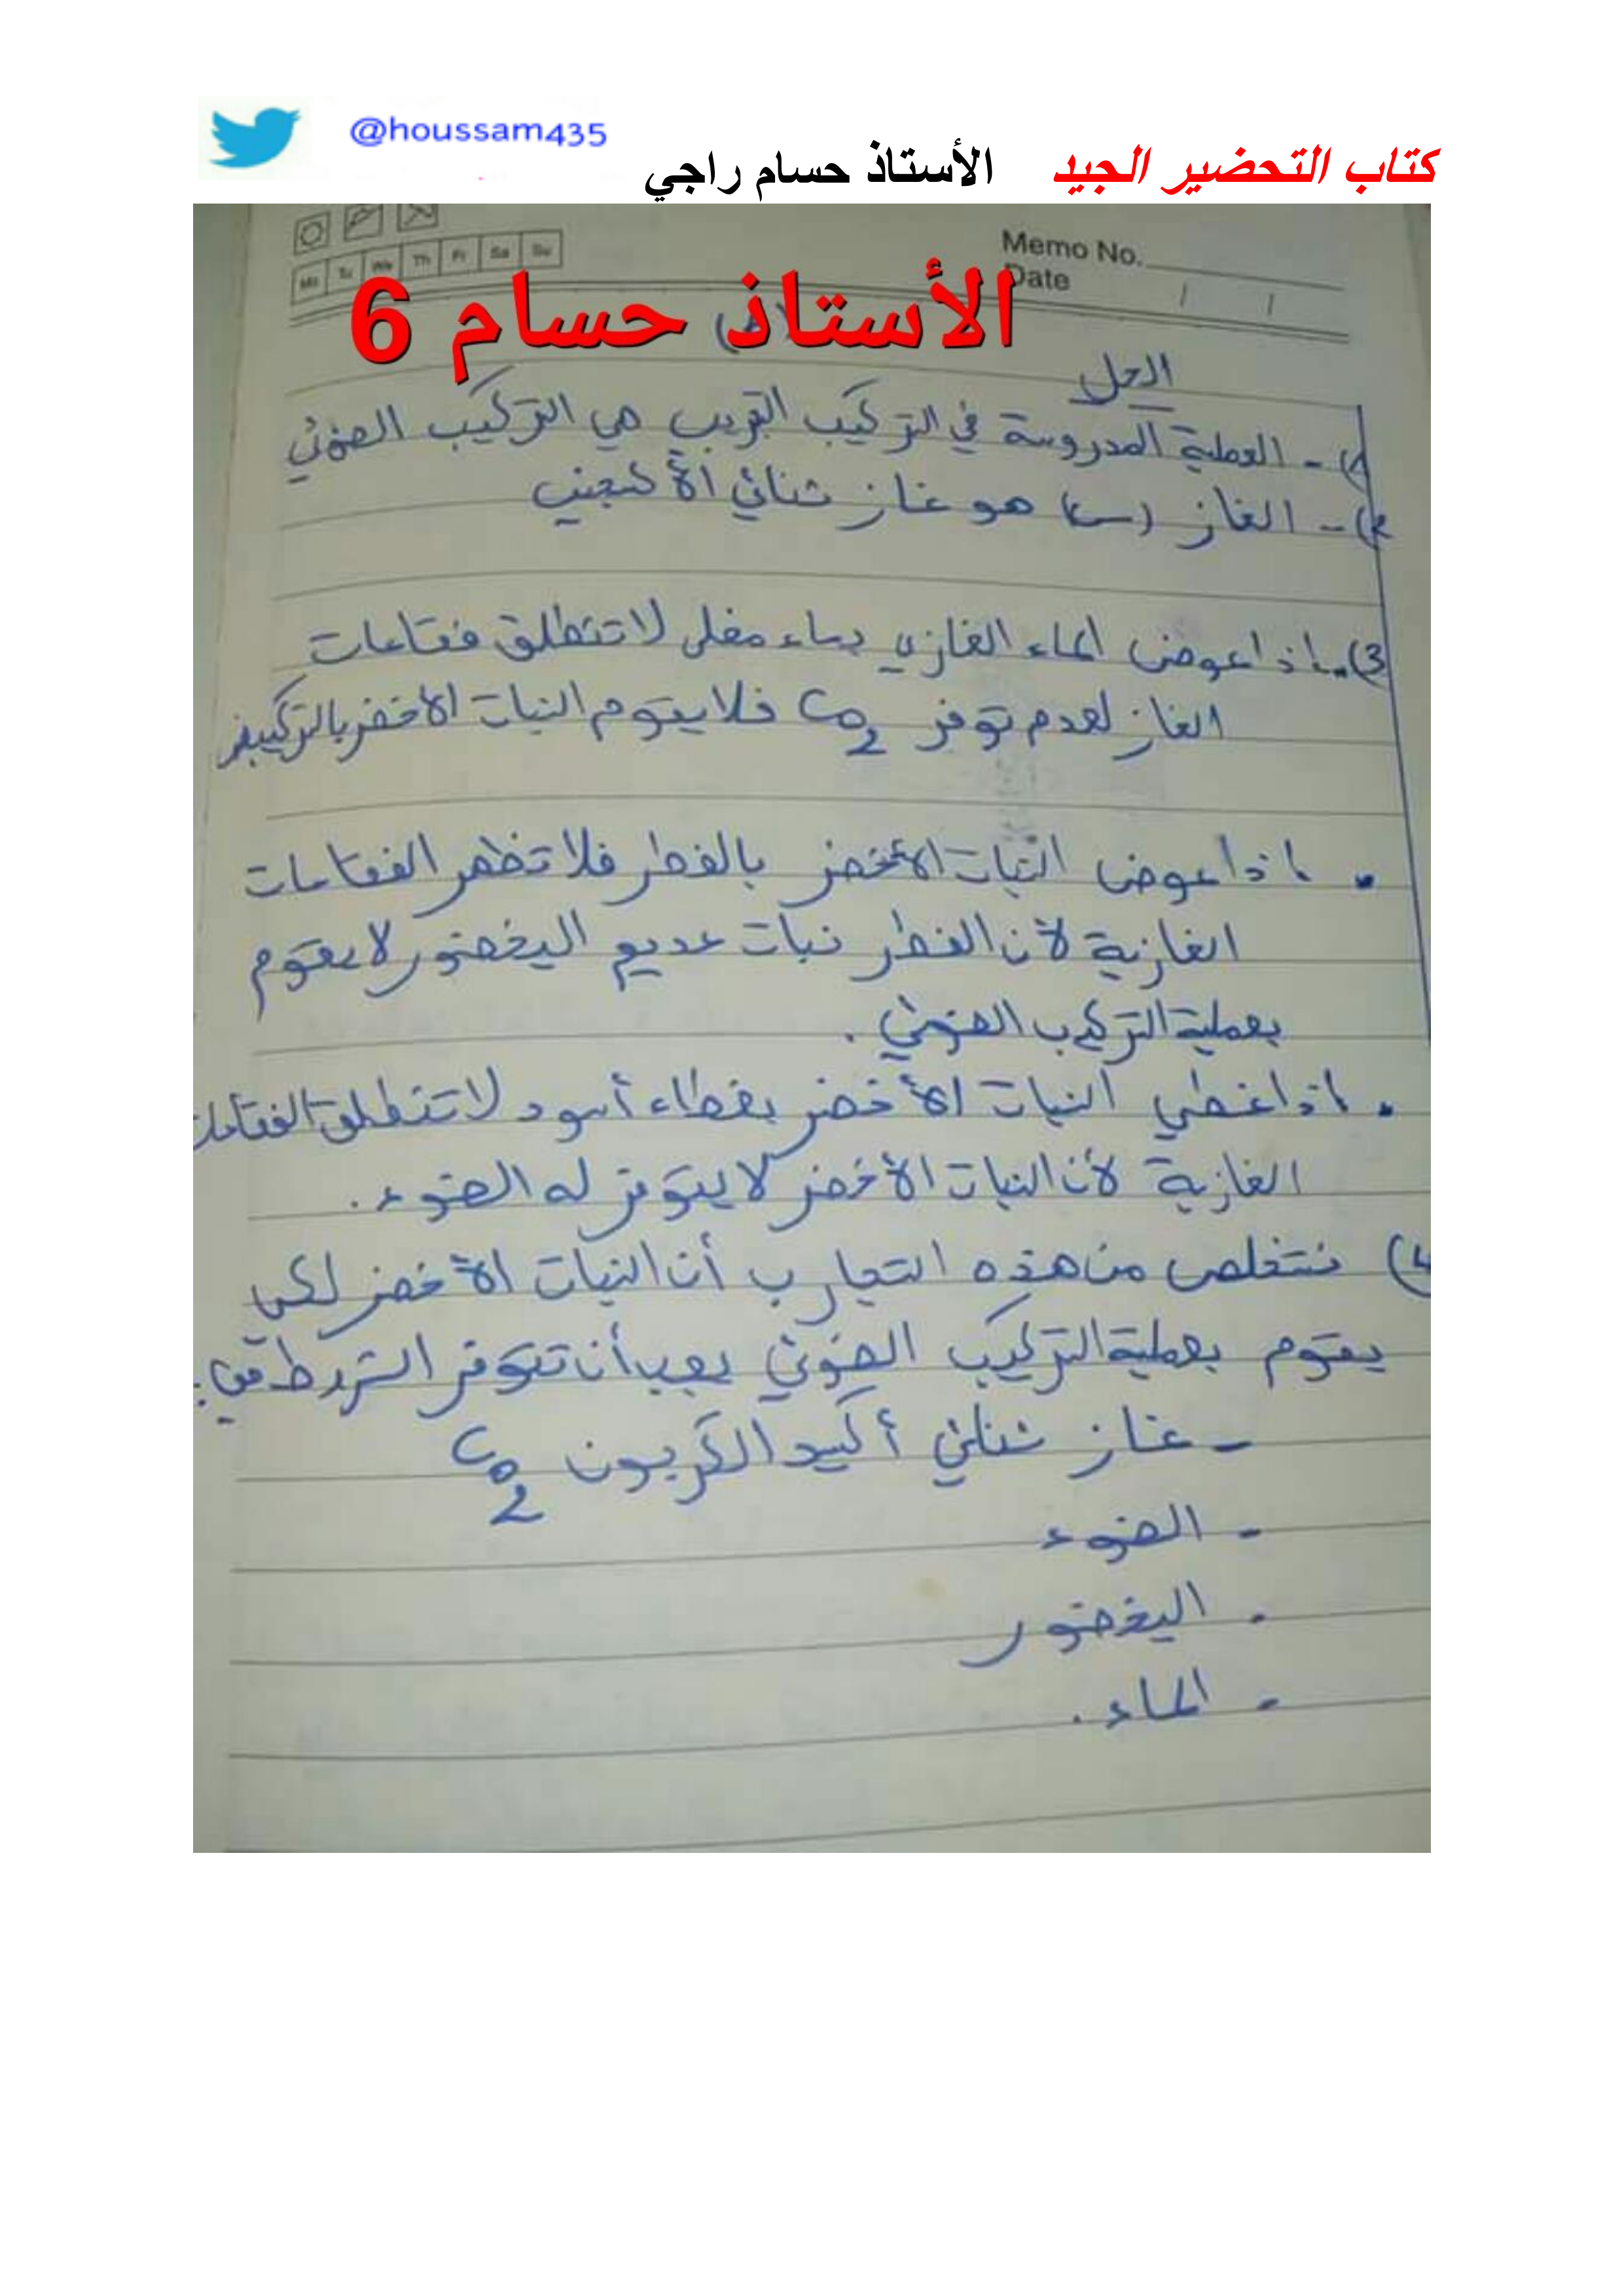 @houssam435
كتاب التحضير الجيد الأستاذ حسام راجي
Mo Tu We Th Fr Sa Su
Memo No.
Date / /
الأستاذ حسام 6
الحل
1) - العملية المدروسة في التركيب التجريبي هي التركيب الضوئي
2) - الغاز (س) هو غاز ثنائي الأكسجين
3). اذا عوض الماء الغازي بماء مغلى لا تنطلق فقاعات
الغاز لعدم توفر CO2 فلا يقوم النبات الأخضر بالتركيب
. اذا عوض النبات الأخضر بالفطر فلا تظهر الفقاعات
الغازية لأن الفطر نبات عديم اليخضور لا يقوم
بعملية التركيب الضوئي .
. اذا غطي النبات الأخضر بغطاء أسود لا تنطلق الفقاعات
الغازية لأن النبات الأخضر لا يتوفر له الضوء .
4) نستخلص من هذه التجارب أن النبات الأخضر لكي
يقوم بعملية التركيب الضوئي يجب أن تتوفر الشروط :
- غاز ثنائي أكسيد الكربون CO2
- الضوء
- اليخضور
- الماء .